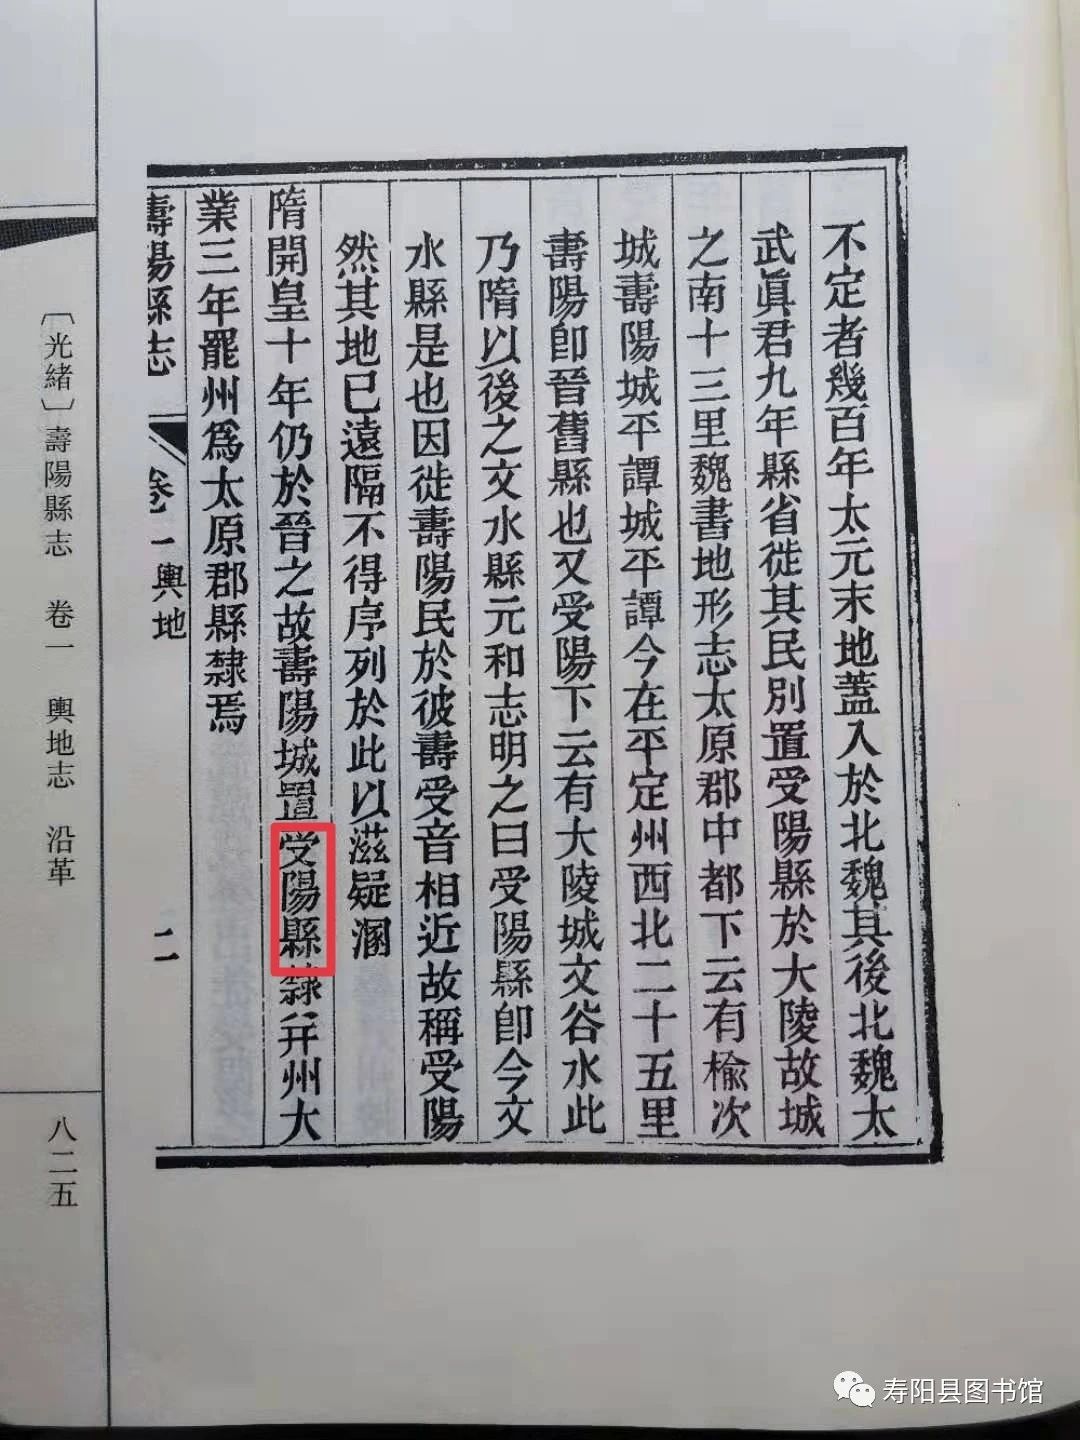 不定者幾百年太元末地蓋入於北魏其後北魏太
武眞君九年縣省徙其民別置受陽縣於大陵故城
之南十三里魏書地形志太原郡中都下云有榆次
城壽陽城平譚城平譚今在平定州西北二十五里
壽陽卽晉舊縣也又受陽下云有大陵城文谷水此
乃隋以後之文水縣元和志明之曰受陽縣卽今文
水縣是也因徙壽陽民於彼壽受音相近故稱受陽
然其地已遠隔不得序列於此以滋疑溷
隋開皇十年仍於晉之故壽陽城置受陽縣隸并州大
業三年罷州爲太原郡縣隸焉
壽陽縣志 卷一輿地 二
〔光緒〕壽陽縣志 卷一 輿地志 沿革 八二五
寿阳县图书馆